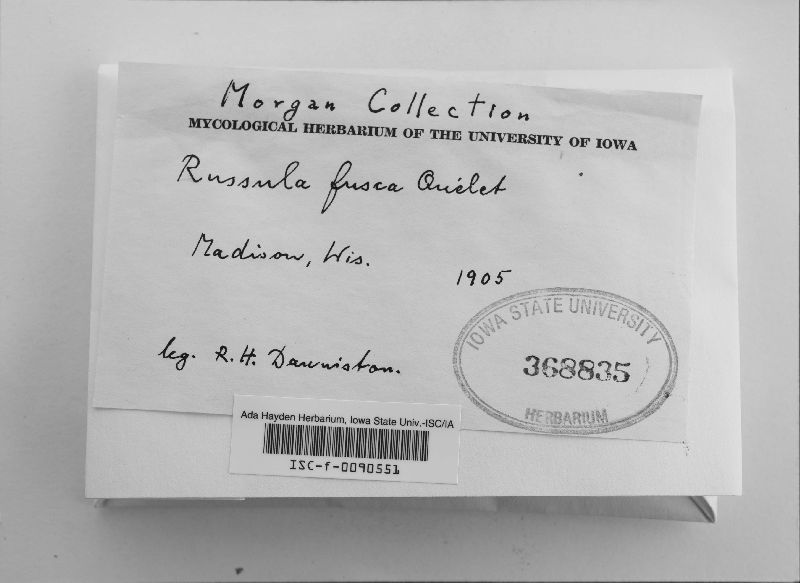 Morgan Collection
MYCOLOGICAL HERBARIUM OF THE UNIVERSITY OF IOWA
Russula fusca Quélet
Madison, Wis.
1905
leg. R. H. Denniston.
IOWA STATE UNIVERSITY
368835
HERBARIUM
Ada Hayden Herbarium, Iowa State Univ.-ISC/IA
ISC-f-0090551